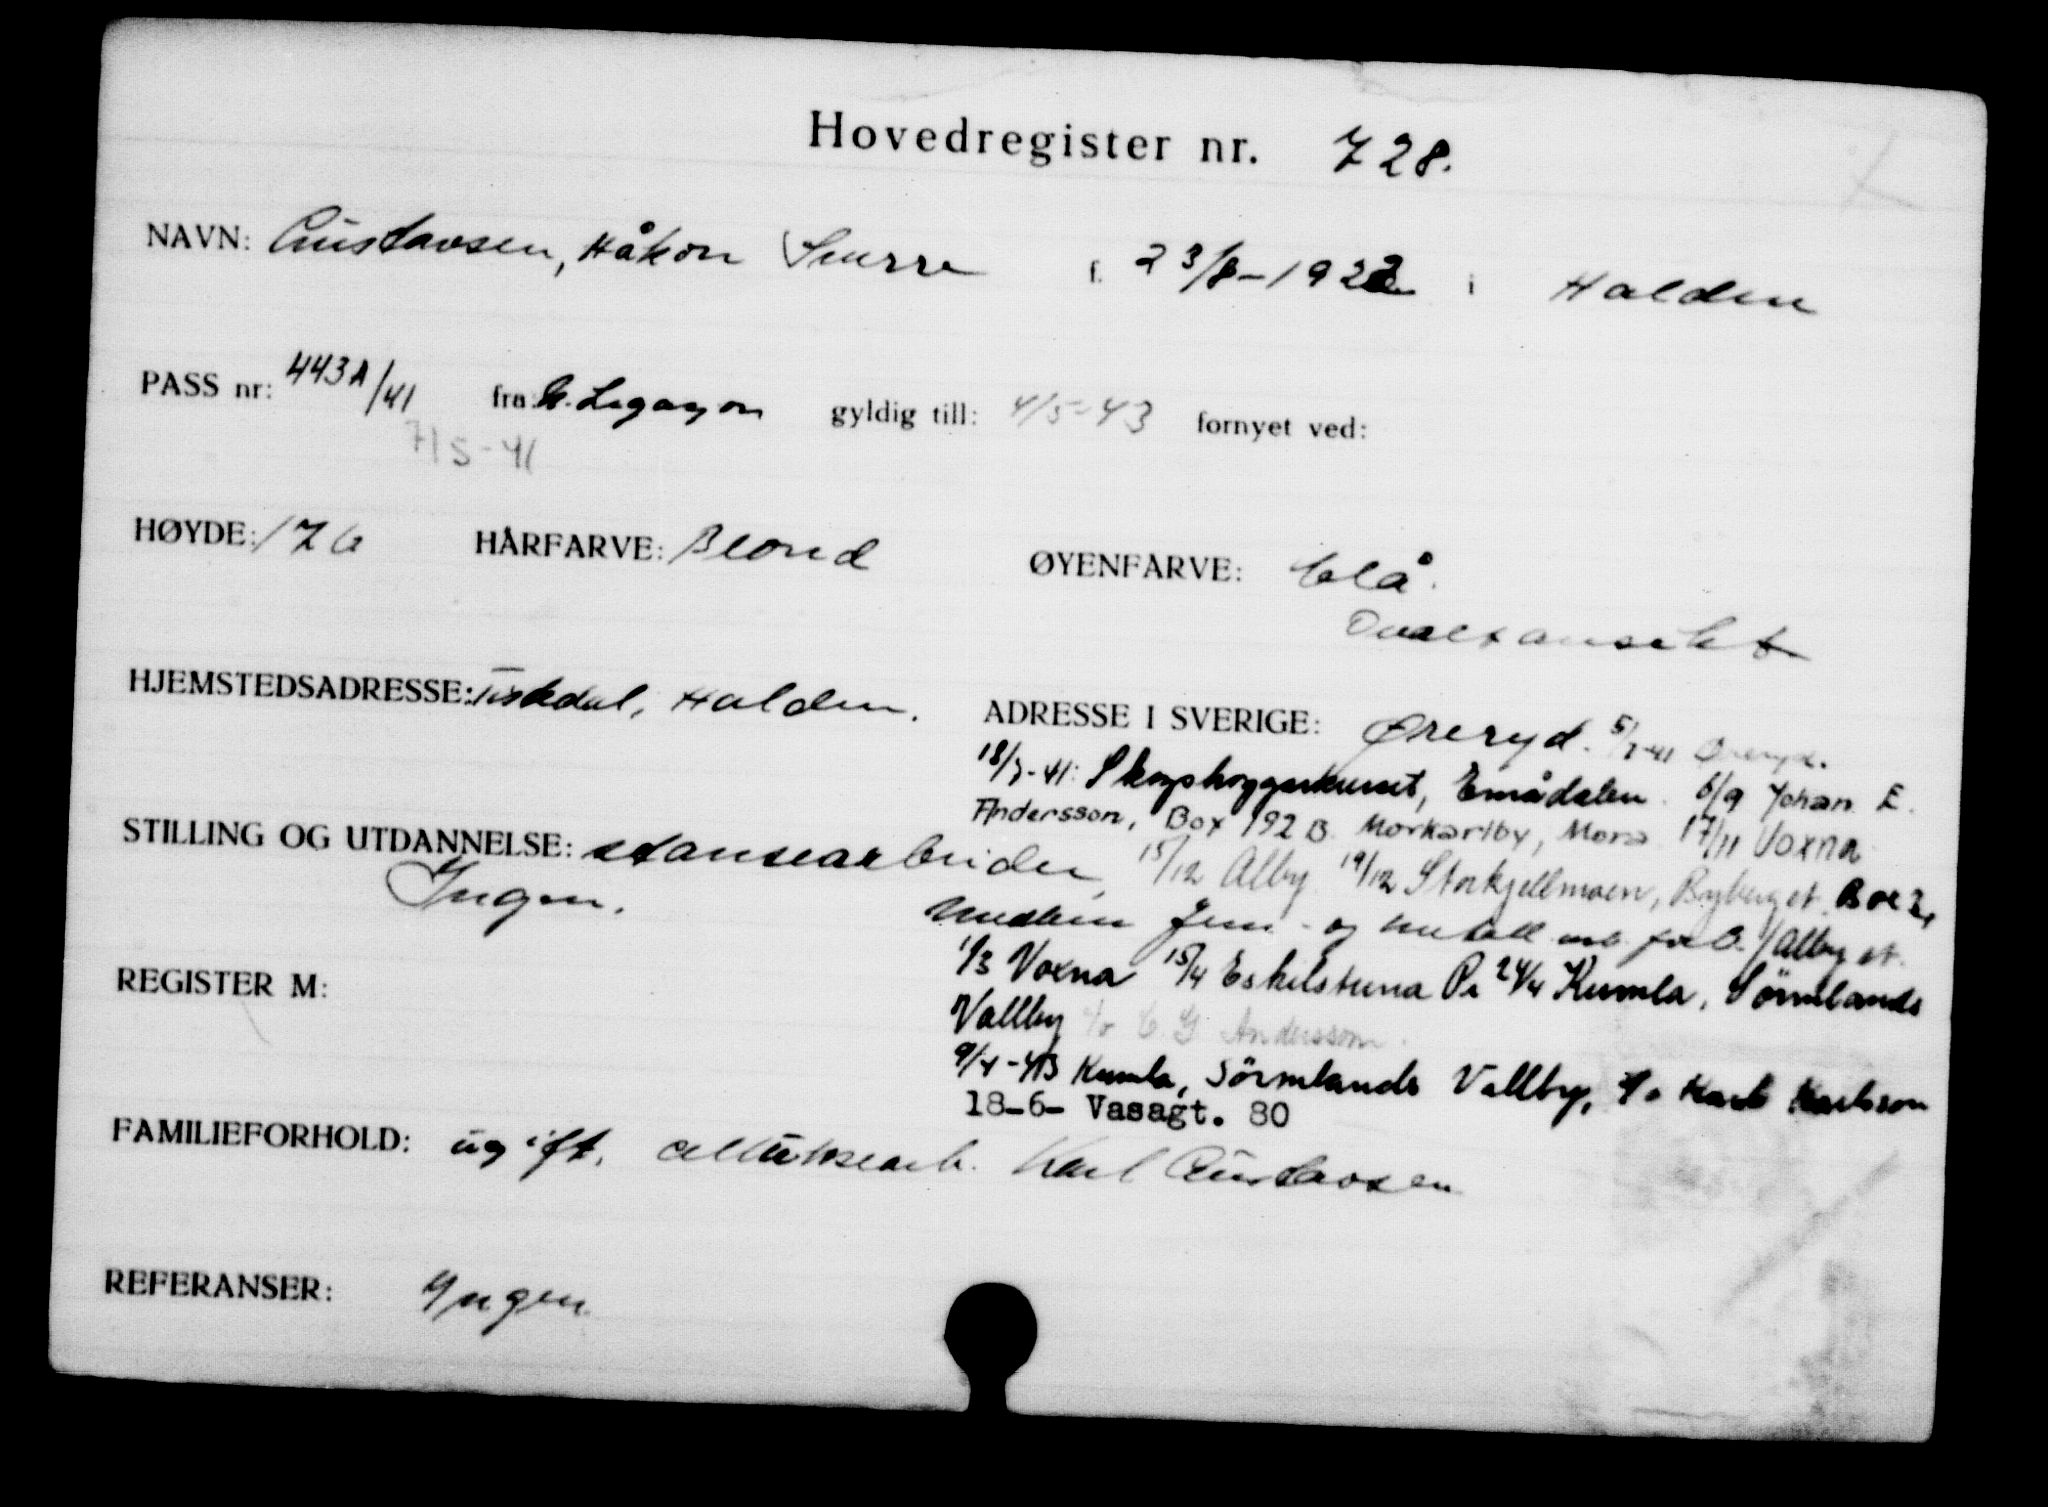 Hovedregister nr. 728.
NAVN: Gustavsen, Håkon f. 23/8-1922 i Halden
PASS nr: 443A/41 fra: N. Legasjon gyldig till: 4/5-43 fornyet ved:
7/5-41
HØYDE: 176 HÅRFARVE: Blond ØYENFARVE: blå.
Ovalt ansikt
HJEMSTEDSADRESSE: Tistedal, Halden. ADRESSE I SVERIGE: Øreryd. 5/7-41 Øreryd.
18/7-41: Skogshoggerkurset, Emådalen. 6/9 Johan E.
Andersson, Box 192 B. Morkarlby, Mora 17/11 Voxna
STILLING OG UTDANNELSE: stansearbeider, 15/12 Alby 19/12 Storkjellmoen, Byberget. Box 2,
Ingen. Medlem Jern- og metall arb. forb. /Alby st.
1/3 Voxna 15/4 Eskilstuna 24/4 Kumla, Sörmlands
REGISTER M:
Vallby c/o C. G. Andersson.
9/4-43 Kumla, Sörmlands Vallby, c/o Karl Karlsson
18-6- Vasagt. 80
FAMILIEFORHOLD: ugift. cellulosearb. Karl Gustavsen
REFERANSER: Yngen